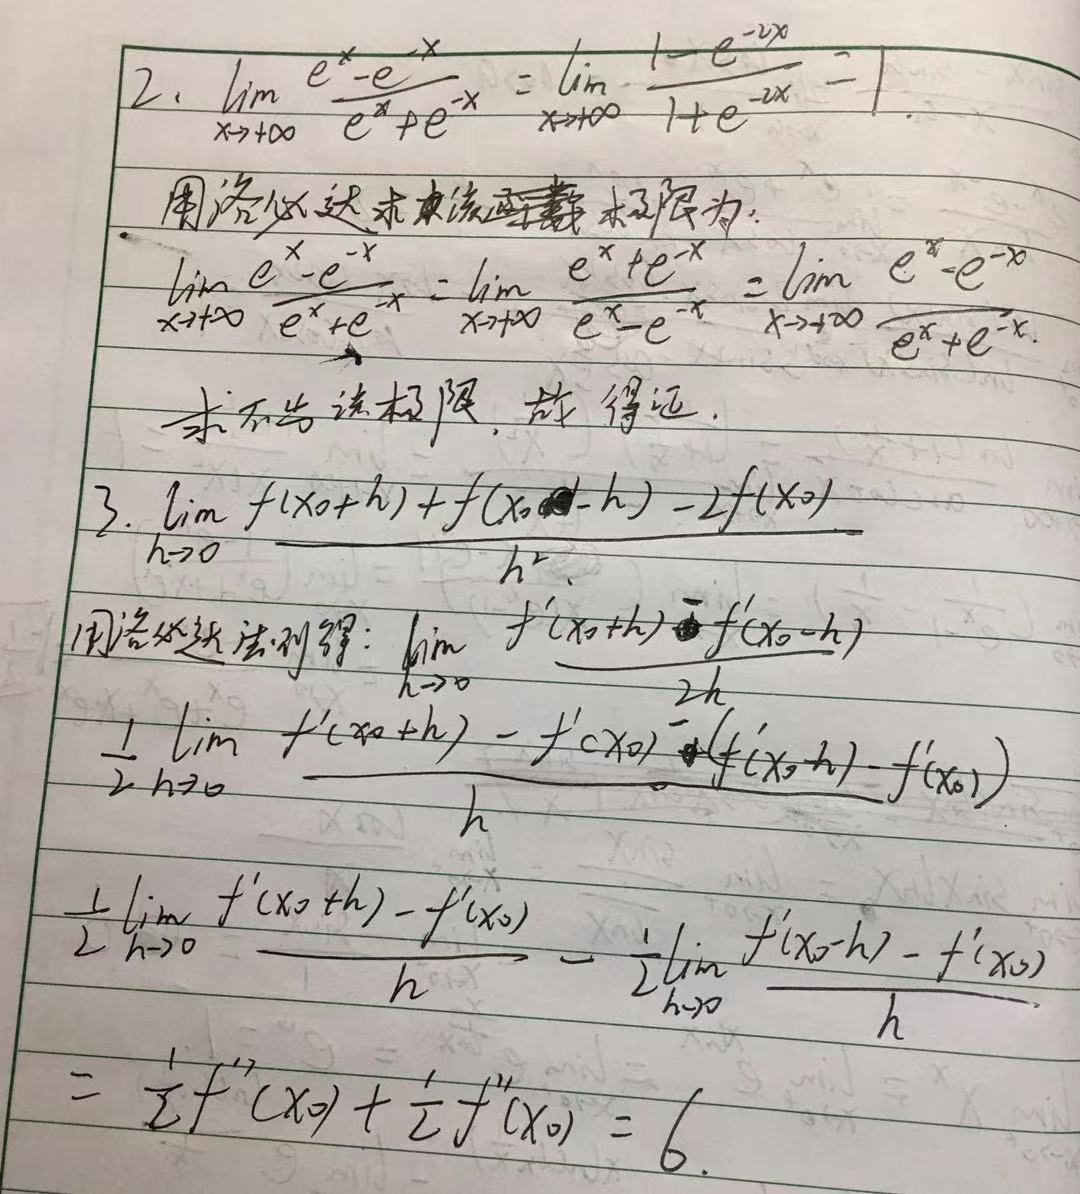 2. lim x→+∞ (e^x - e^-x)/(e^x + e^-x) = lim x→+∞ (1 - e^-2x)/(1 + e^-2x) = 1.
用洛必达求该极限为:
lim x→+∞ (e^x - e^-x)/(e^x + e^-x) = lim x→+∞ (e^x + e^-x)/(e^x - e^-x) = lim x→+∞ (e^x - e^-x)/(e^x + e^-x).
求不出该极限. 故得证.
3. lim h→0 (f(x₀+h) + f(x₀-h) - 2f(x₀))/h².
用洛必达法则得: lim h→0 (f'(x₀+h) - f'(x₀-h))/2h
1/2 lim h→0 (f'(x₀+h) - f'(x₀) - (f'(x₀-h) - f'(x₀)))/h
1/2 lim h→0 (f'(x₀+h) - f'(x₀))/h - 1/2 lim h→0 (f'(x₀-h) - f'(x₀))/h
= 1/2 f''(x₀) + 1/2 f''(x₀) = 6.